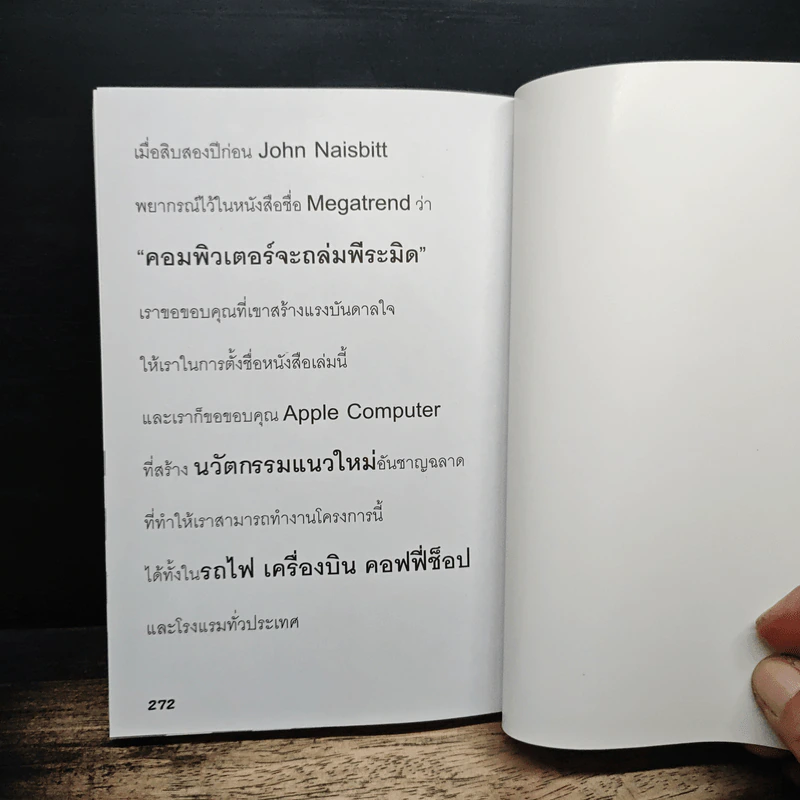 เมื่อสิบสองปีก่อน John Naisbitt
พยากรณ์ไว้ในหนังสือชื่อ Megatrend ว่า
“คอมพิวเตอร์จะถล่มพีระมิด”
เราขอขอบคุณที่เขาสร้างแรงบันดาลใจ
ให้เราในการตั้งชื่อหนังสือเล่มนี้
และเราก็ขอขอบคุณ Apple Computer
ที่สร้าง นวัตกรรมแนวใหม่อันชาญฉลาด
ที่ทำให้เราสามารถทำงานโครงการนี้
ได้ทั้งในรถไฟ เครื่องบิน คอฟฟี่ช็อป
และโรงแรมทั่วประเทศ
272